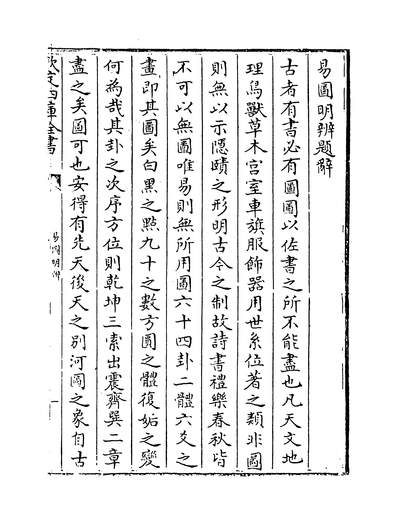 易圖明辨題辭
古者有書必有圖圖以佐書之所不能盡也凡天文地
理鳥獸草木宮室車旗服飾器用世系位著之類非圖
則無以示隱賾之形明古今之制故詩書禮樂春秋皆
不可以無圖唯易則無所用圖六十四卦二體六爻之
畫即其圖矣白黑之點九十之數方圓之體復姤之變
何為哉其卦之次序方位則乾坤三索出震齊巽二章
盡之矣圖可也安得有先天後天之別河圖之象自古
欽定四庫全書
易圖明辨